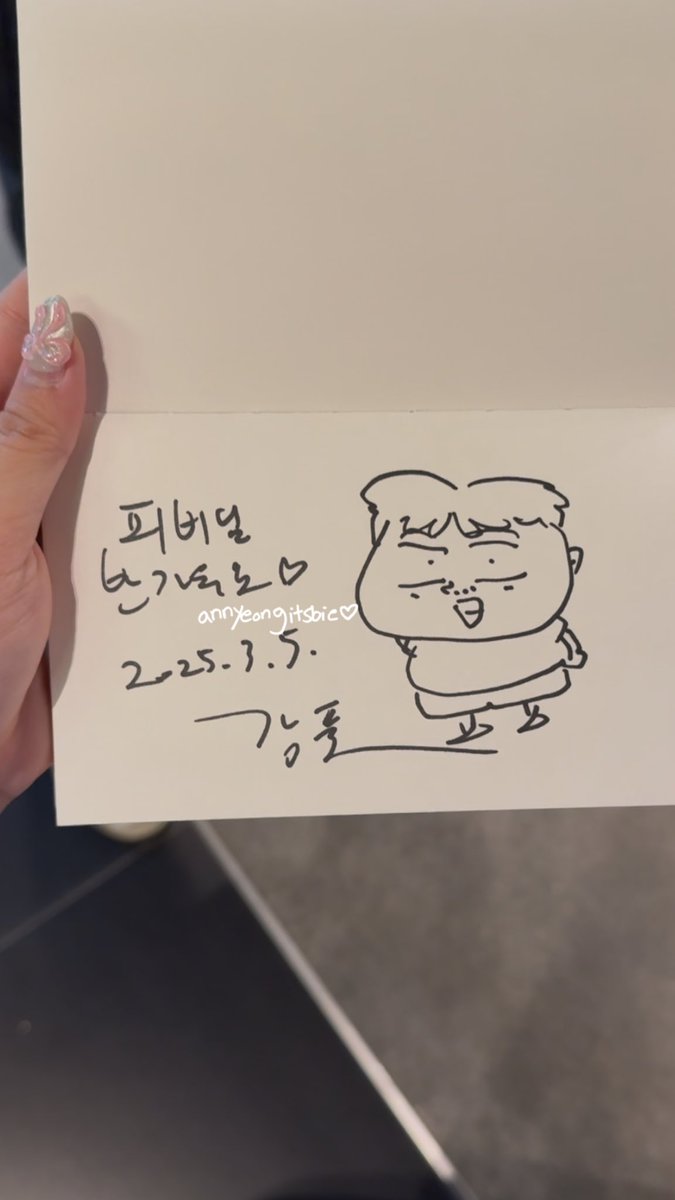 피비님
반가워요♡
annyeongitsbie♡
2025.3.5.
강풀